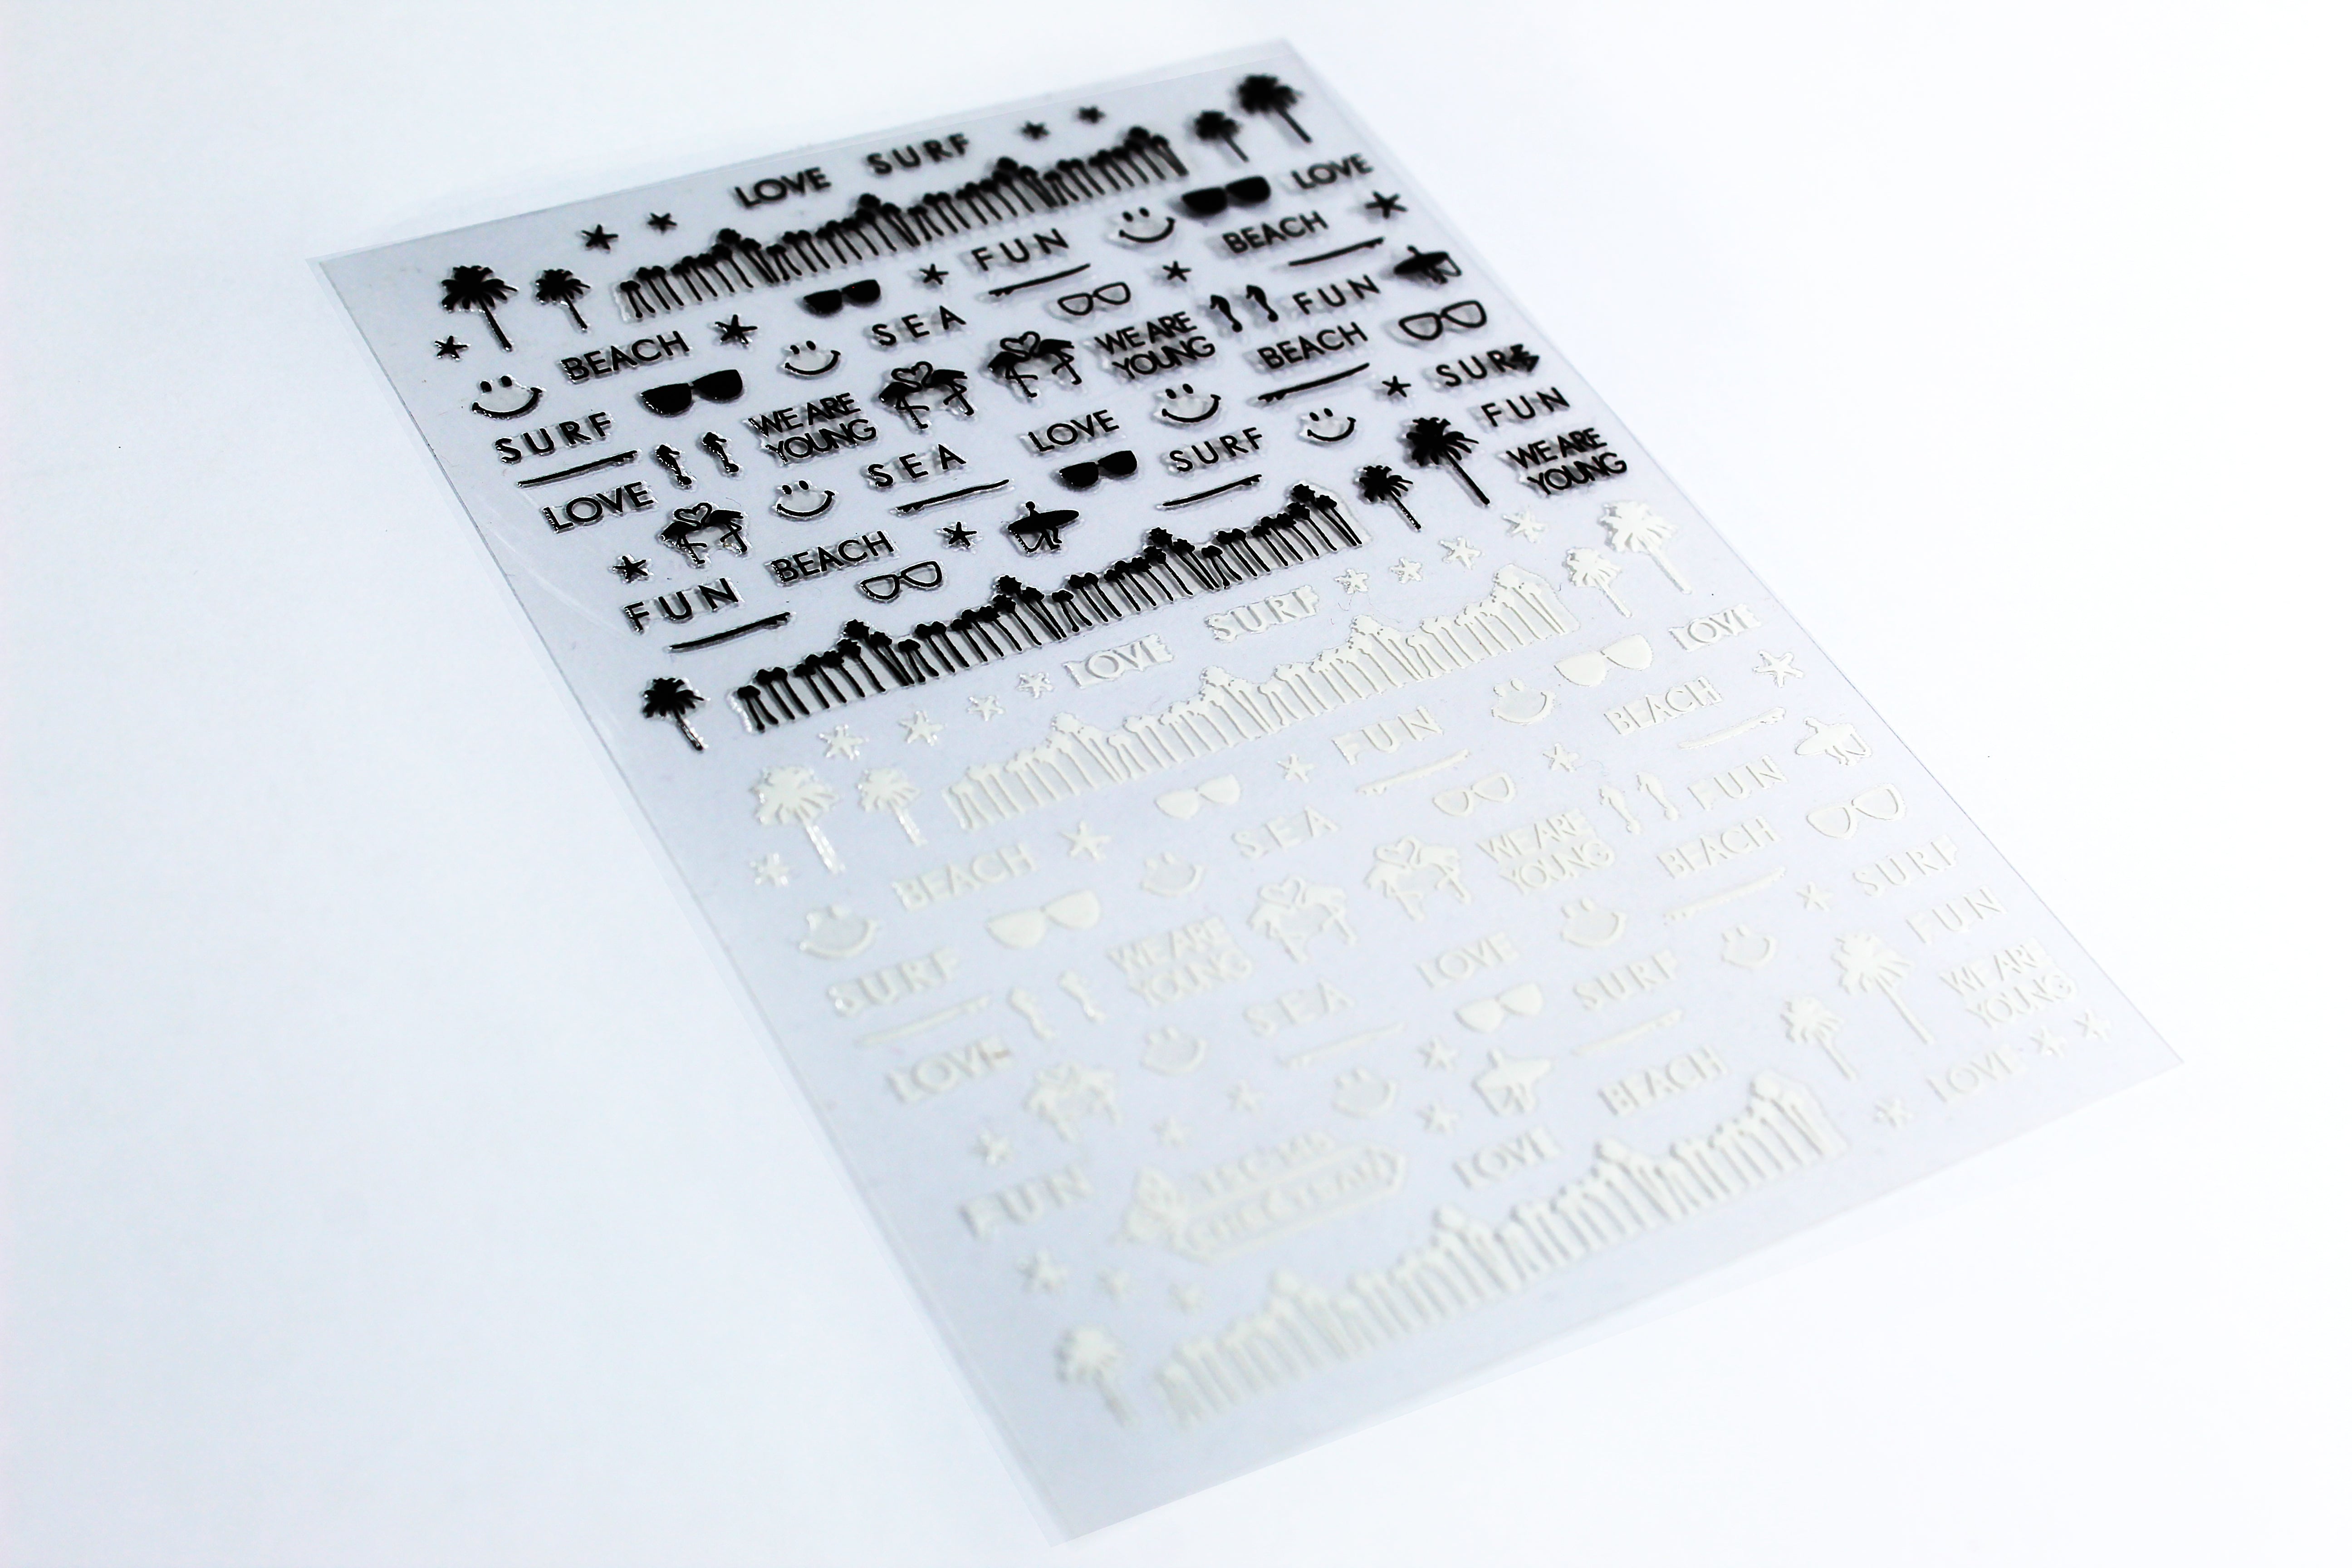 LOVE SURF
LOVE
FUN
BEACH
BEACH
SEA
WE ARE
YOUNG
FUN
SURF
WE ARE
YOUNG
BEACH
SURF
LOVE
SEA
LOVE
SURF
FUN
WE ARE
YOUNG
FUN
BEACH
LOVE SURF
LOVE
FUN
BEACH
BEACH
SEA
WE ARE
YOUNG
FUN
SURF
WE ARE
YOUNG
BEACH
SURF
LOVE
SEA
LOVE
SURF
FUN
WE ARE
YOUNG
FUN
LOVE
BEACH
LOVE